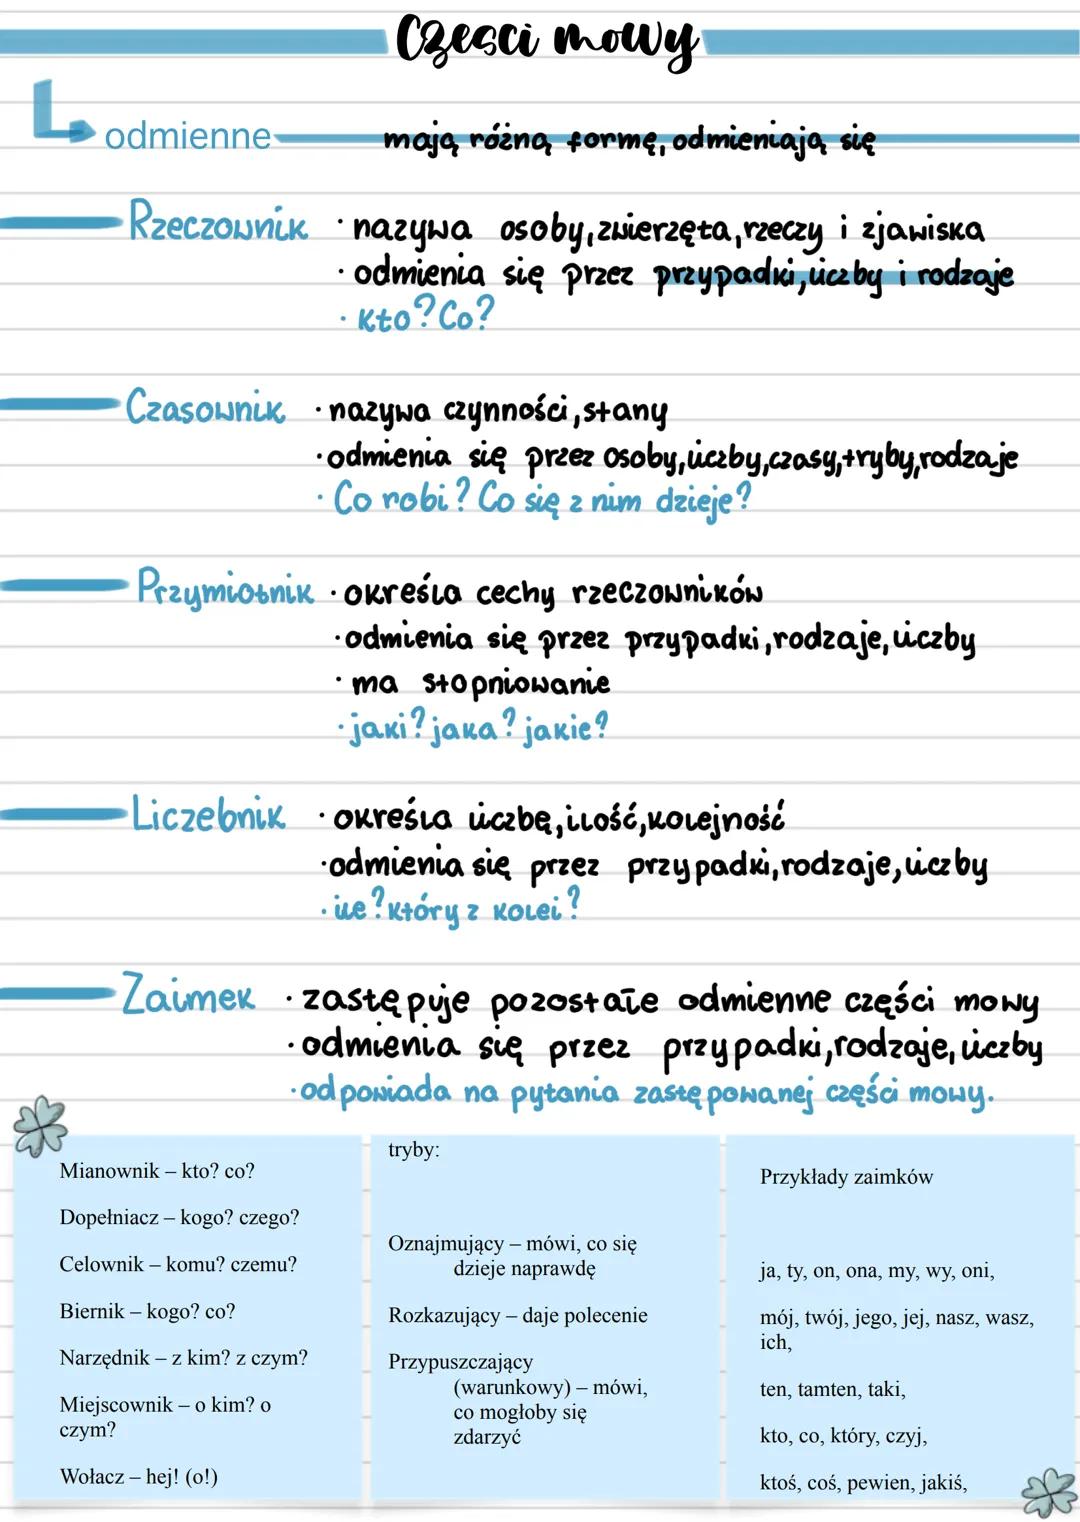 Czesci mowy
odmienne mają różną formę, odmieniają się
Rzeczownik · nazywa osoby, zwierzęta, rzeczy i zjawiska
· odmienia się przez przypadki, liczby i rodzaje
· Kto? Co?
Czasownik · nazywa czynności, stany
· odmienia się przez osoby, liczby, czasy, tryby, rodzaje
· Co robi? Co się z nim dzieje?
Przymiotnik · określa cechy rzeczowników
· odmienia się przez przypadki, rodzaje, liczby
· ma stopniowanie
· jaki? jaka? jakie?
Liczebnik · określa liczbę, ilość, kolejność
· odmienia się przez przypadki, rodzaje, liczby
· ile? który z kolei?
Zaimek · zastępuje pozostałe odmienne części mowy
· odmienia się przez przypadki, rodzaje, liczby
· odpowiada na pytania zastępowanej części mowy.
Mianownik – kto? co?
Dopełniacz – kogo? czego?
Celownik – komu? czemu?
Biernik – kogo? co?
Narzędnik – z kim? z czym?
Miejscownik – o kim? o
czym?
Wołacz – hej! (o!)
tryby:
Oznajmujący – mówi, co się
dzieje naprawdę
Rozkazujący – daje polecenie
Przypuszczający
(warunkowy) – mówi,
co mogłoby się
zdarzyć
Przykłady zaimków
ja, ty, on, ona, my, wy, oni,
mój, twój, jego, jej, nasz, wasz,
ich,
ten, tamten, taki,
kto, co, który, czyj,
ktoś, coś, pewien, jakiś,